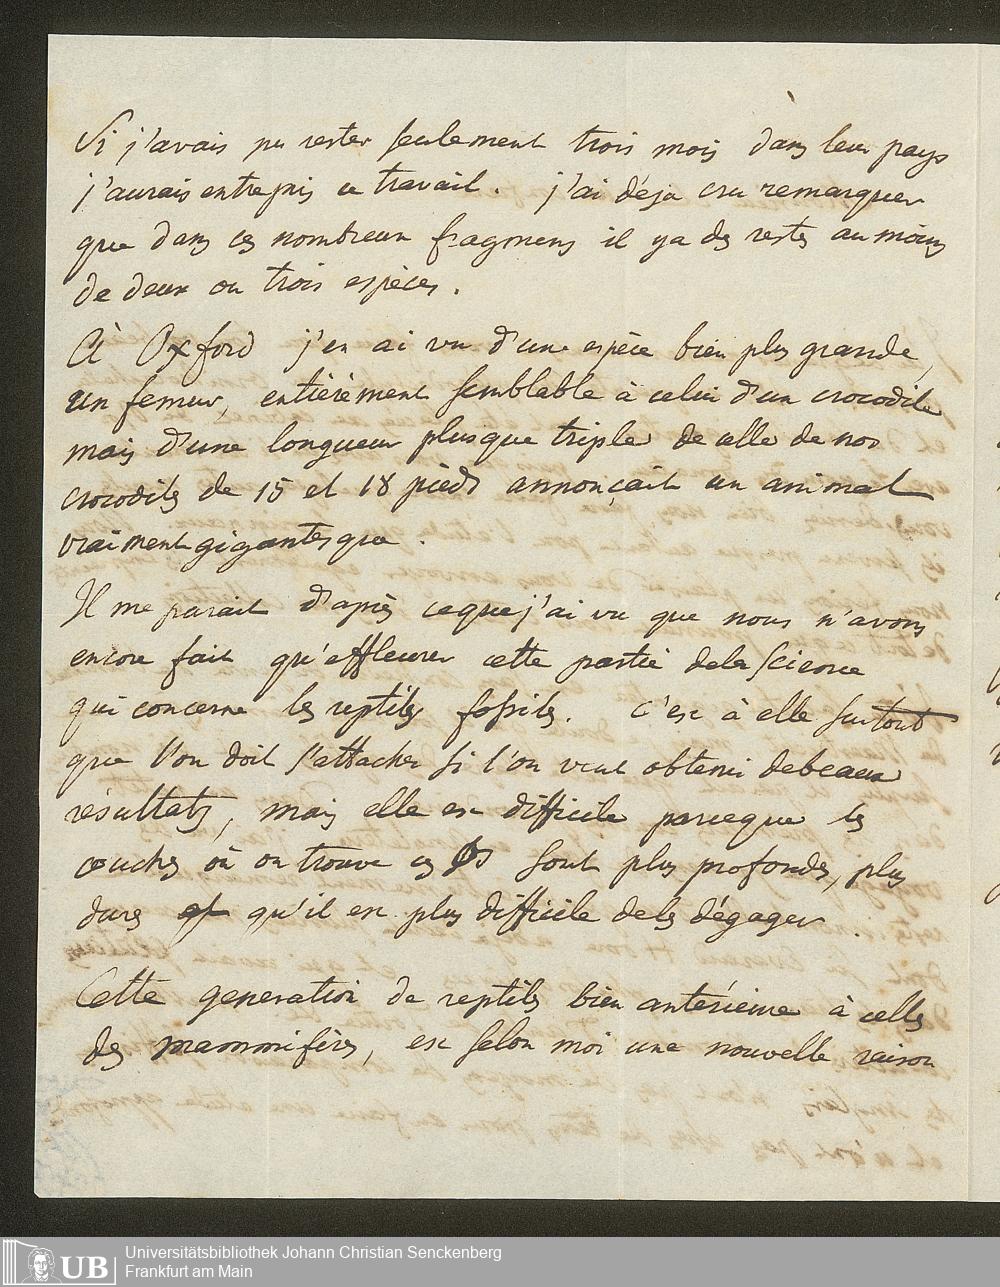 Si j'avais pu rester seulement trois mois dans leur pays
j'aurais entrepris ce travail. j'ai déja cru remarquer
que dans ces nombreux fragmens il ya des restes au moins
de deux ou trois espèces.
À Oxford j'en ai vu d'une espèce bien plus grande,
un femur, entièrement semblable à celui d'un crocodile
mais d'une longueur plusque triple de celle de nos
crocodiles de 15 et 18 pieds annonçait un animal
vraiment gigantesque.
Il me parait d'après ceque j'ai vu que nous n'avons
encore fait qu'effleurer cette partie dela science
qui concerne les reptiles fossiles. c'est à elle surtout
que l'on doit s'attacher si l'on veut obtenir debeaux
résultats, mais elle est difficile parceque les
couches où on trouve ces os sont plus profondes, plus
dures et qu'il est plus difficile deles dégager.
Cette generation de reptiles bien antérieure à celles
des mammifères, est selon moi une nouvelle raison
Universitätsbibliothek Johann Christian Senckenberg
UB Frankfurt am Main